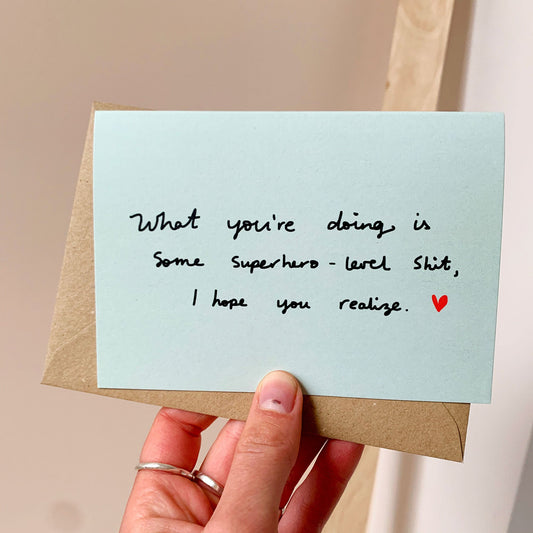 What you're doing is
some superhero-level shit,
I hope you realize.